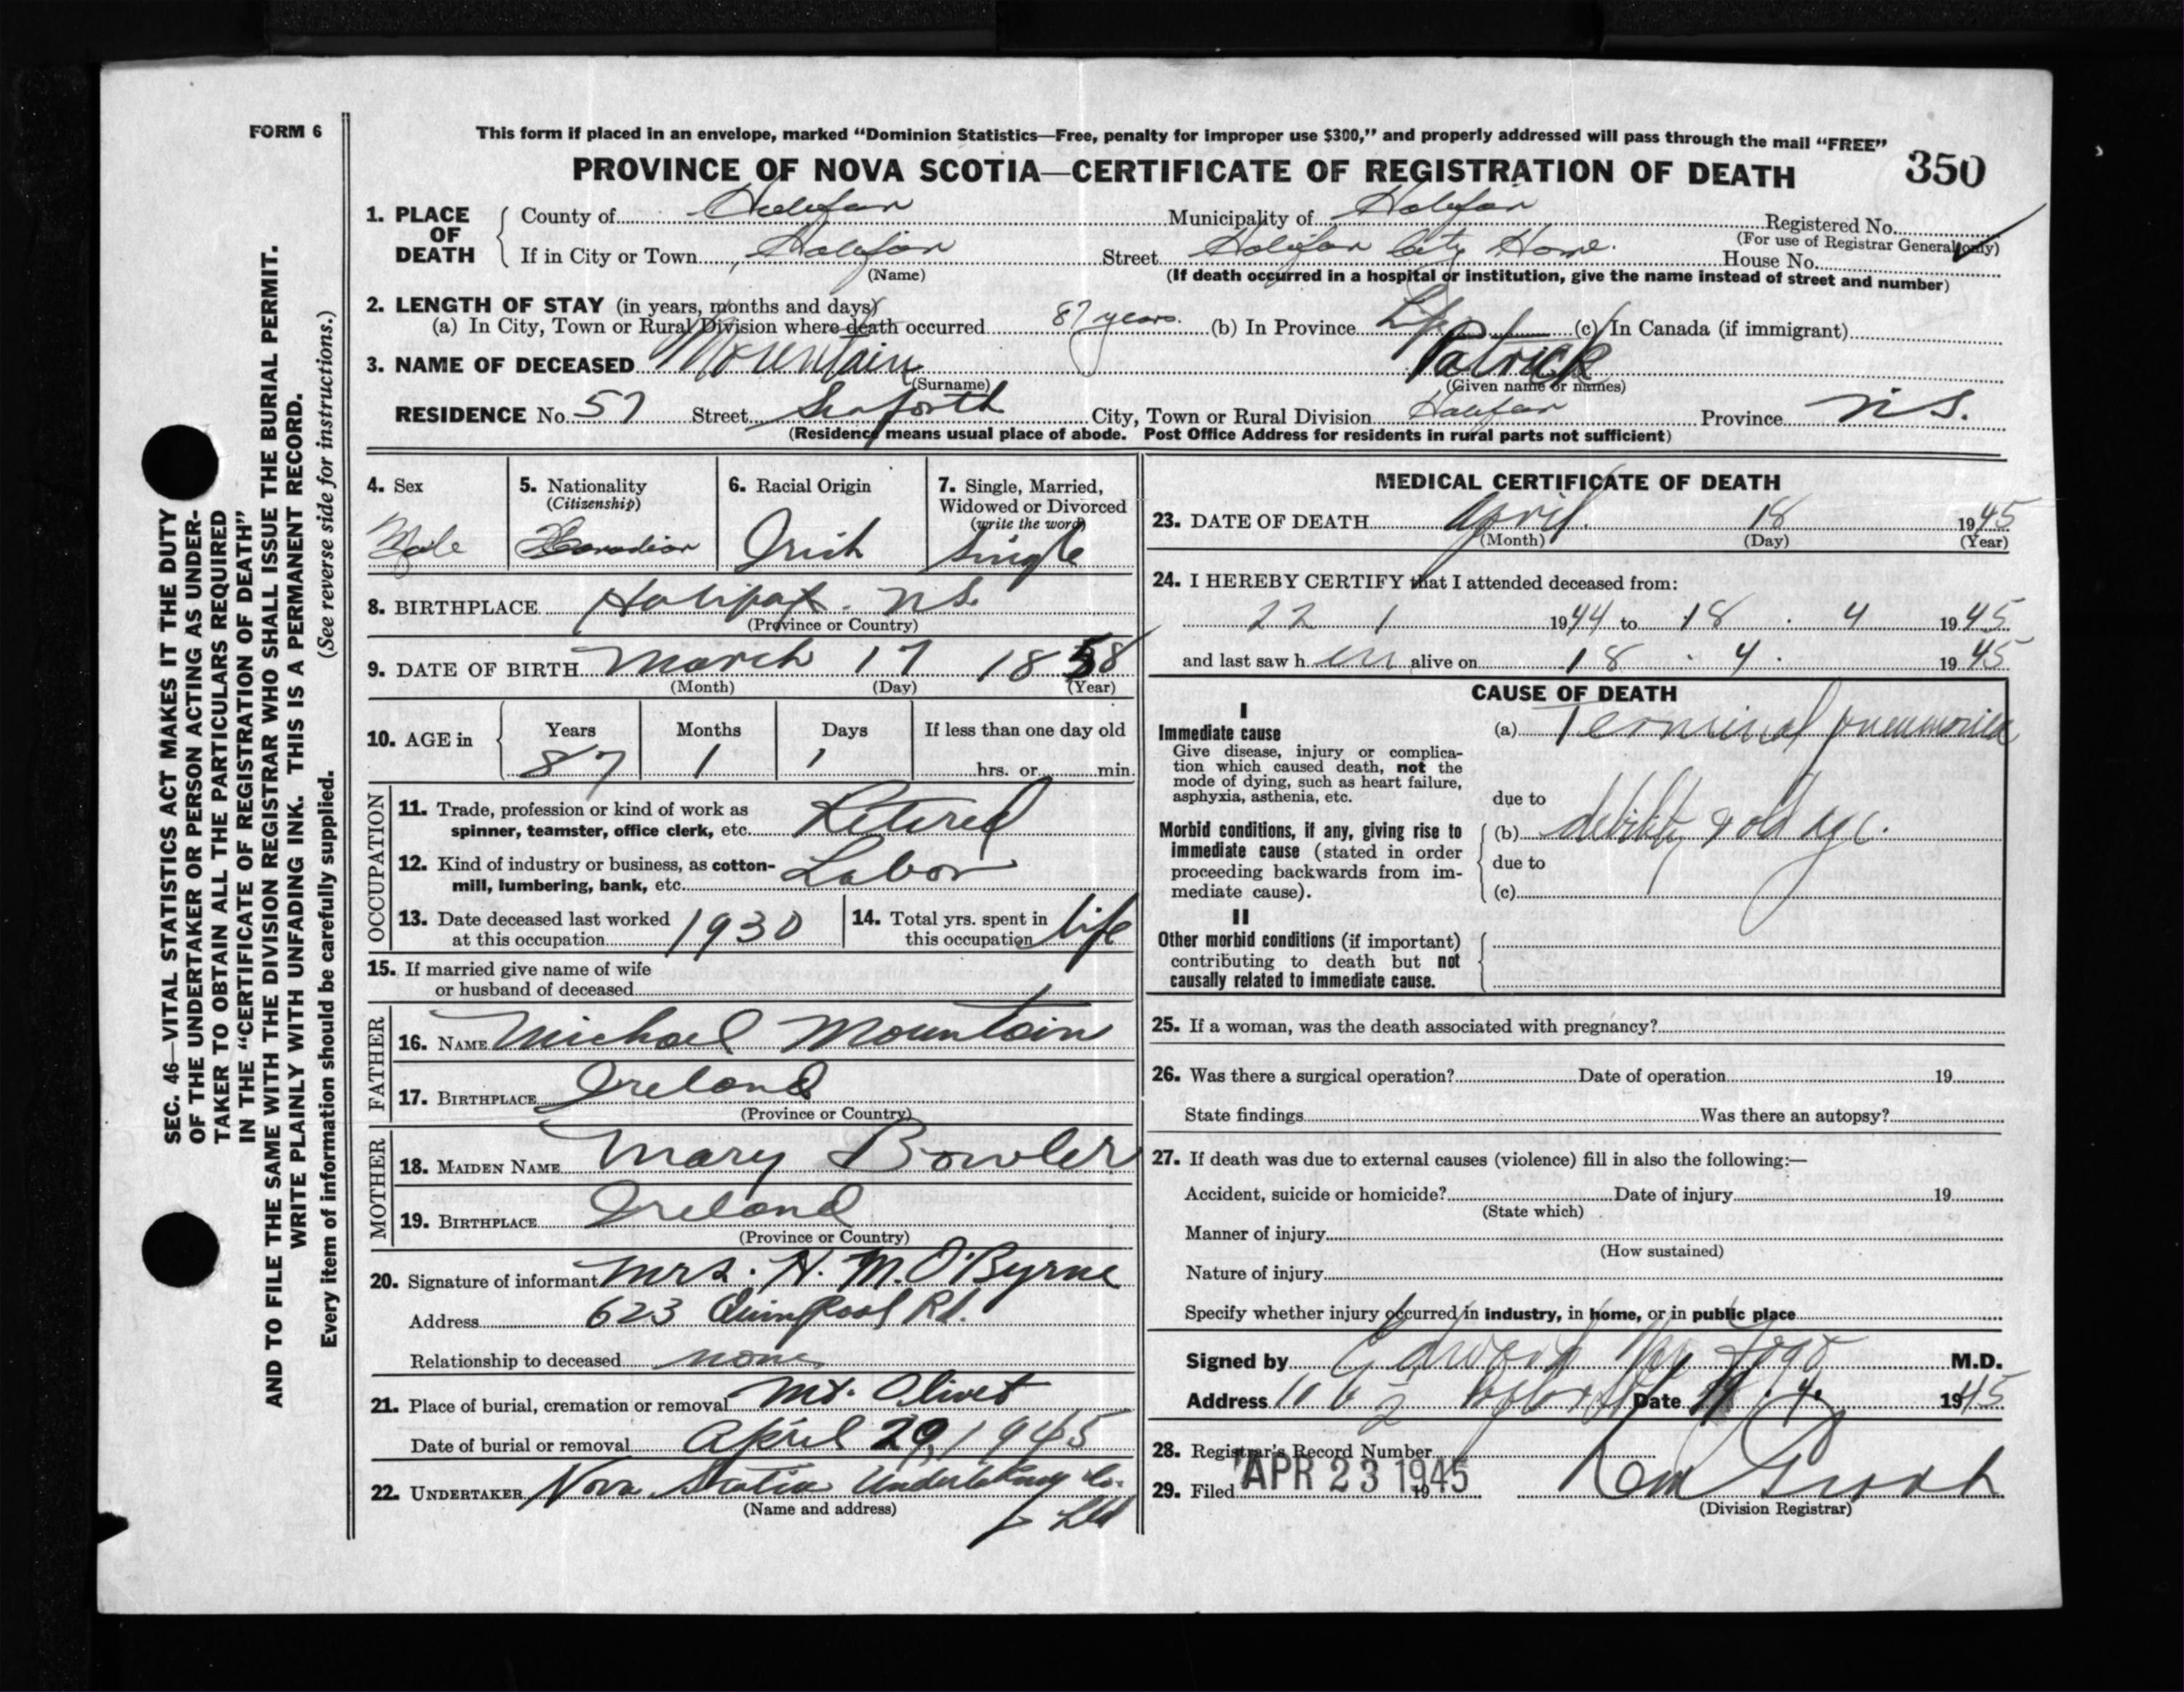 FORM 6
This form if placed in an envelope, marked “Dominion Statistics—Free, penalty for improper use $300,” and properly addressed will pass through the mail “FREE”
PROVINCE OF NOVA SCOTIA—CERTIFICATE OF REGISTRATION OF DEATH
350
1. PLACE OF DEATH
County of Halifax Municipality of Halifax Registered No.
(For use of Registrar General only)
If in City or Town Halifax Street Halifax City Home. House No.
(Name) (If death occurred in a hospital or institution, give the name instead of street and number)
2. LENGTH OF STAY (in years, months and days)
(a) In City, Town or Rural Division where death occurred 87 years. (b) In Province Life (c) In Canada (if immigrant)
3. NAME OF DECEASED Mountain Patrick
(Surname) (Given name or names)
RESIDENCE No. 57 Street Seaforth City, Town or Rural Division Halifax Province N.S.
(Residence means usual place of abode. Post Office Address for residents in rural parts not sufficient)
4. Sex
Male
5. Nationality
(Citizenship)
Canadian
6. Racial Origin
Irish
7. Single, Married,
Widowed or Divorced
(write the word)
Single
8. BIRTHPLACE Halifax. N.S.
(Province or Country)
9. DATE OF BIRTH March 17 1858
(Month) (Day) (Year)
10. AGE in
Years Months Days If less than one day old
87 1 1 hrs. or min.
OCCUPATION
11. Trade, profession or kind of work as
spinner, teamster, office clerk, etc. Retired
12. Kind of industry or business, as cotton-
mill, lumbering, bank, etc. Labor
13. Date deceased last worked
at this occupation 1930
14. Total yrs. spent in
this occupation life
15. If married give name of wife
or husband of deceased
FATHER
16. NAME Michael Mountain
17. BIRTHPLACE Ireland
(Province or Country)
MOTHER
18. MAIDEN NAME Mary Bowler
19. BIRTHPLACE Ireland
(Province or Country)
20. Signature of informant Mrs. H. M. O'Byrne
Address 623 Quinpool Rd.
Relationship to deceased none
21. Place of burial, cremation or removal Mt. Olivet
Date of burial or removal April 20, 1945
22. UNDERTAKER Nova Scotia Undertaking Co.
(Name and address)
Ltd
MEDICAL CERTIFICATE OF DEATH
23. DATE OF DEATH April. 18 1945
(Month) (Day) (Year)
24. I HEREBY CERTIFY that I attended deceased from:
22 1 1944 to 18 . 4 1945
and last saw h im alive on 18 . 4 . 1945
CAUSE OF DEATH
I
Immediate cause
Give disease, injury or complica-
tion which caused death, not the
mode of dying, such as heart failure,
asphyxia, asthenia, etc.
(a) Terminal pneumonia
due to
Morbid conditions, if any, giving rise to
immediate cause (stated in order
proceeding backwards from im-
mediate cause).
(b) debility & old age.
due to
(c)
II
Other morbid conditions (if important)
contributing to death but not
causally related to immediate cause.
25. If a woman, was the death associated with pregnancy?
26. Was there a surgical operation? Date of operation 19
State findings Was there an autopsy?
27. If death was due to external causes (violence) fill in also the following:—
Accident, suicide or homicide? Date of injury 19
(State which)
Manner of injury
(How sustained)
Nature of injury
Specify whether injury occurred in industry, in home, or in public place
Signed by M.D.
Address Date 1945
28. Registrar's Record Number
29. Filed APR 23 1945
(Division Registrar)
SEC. 46—VITAL STATISTICS ACT MAKES IT THE DUTY
OF THE UNDERTAKER OR PERSON ACTING AS UNDER-
TAKER TO OBTAIN ALL THE PARTICULARS REQUIRED
IN THE “CERTIFICATE OF REGISTRATION OF DEATH”
AND TO FILE THE SAME WITH THE DIVISION REGISTRAR WHO SHALL ISSUE THE BURIAL PERMIT.
WRITE PLAINLY WITH UNFADING INK. THIS IS A PERMANENT RECORD.
Every item of information should be carefully supplied. (See reverse side for instructions.)